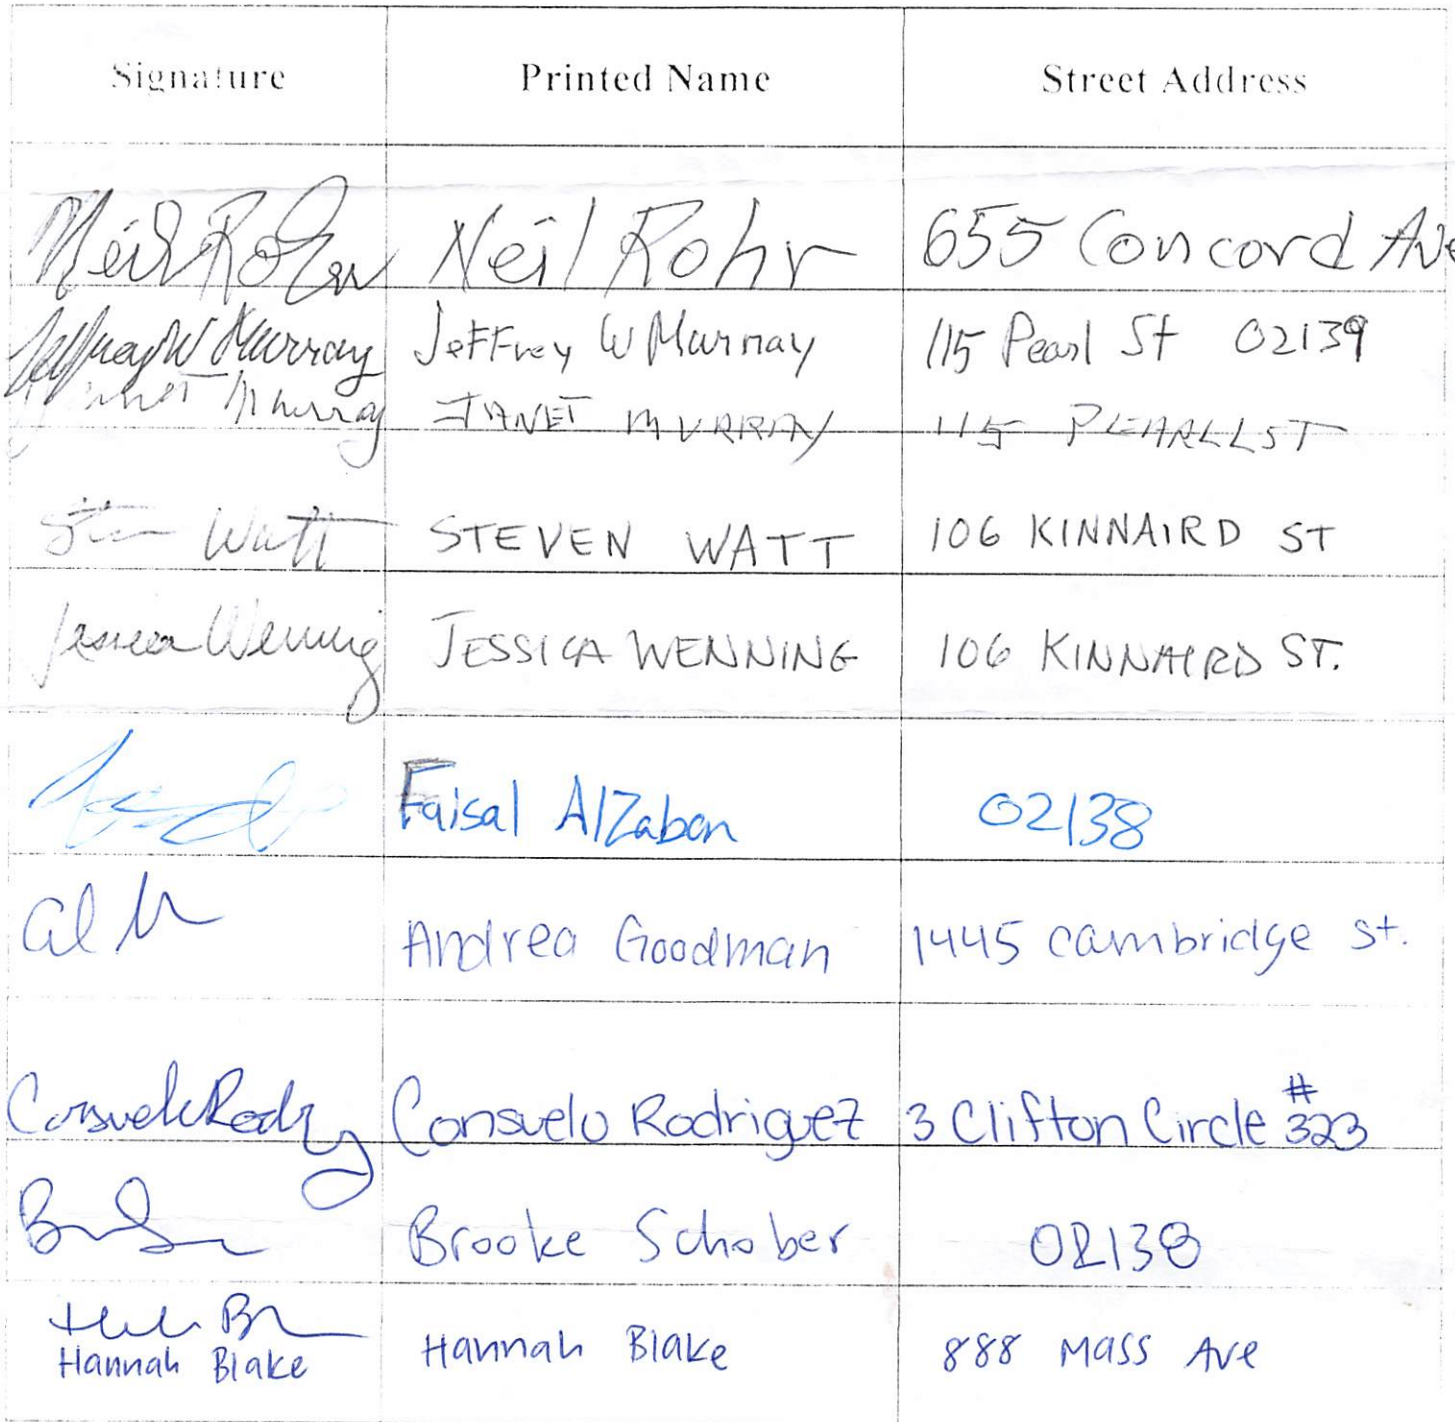 Signature Printed Name Street Address
Neil Rohr Neil Rohr 655 Concord Ave
Jeffrey W Murray Jeffrey W Murray 115 Pearl St 02139
Janet Murray JANET MURRAY 115 PEARLL ST
Watt STEVEN WATT 106 KINNAIRD ST
Jessica Wenning JESSICA WENNING 106 KINNAIRD ST.
Faisal AlZaban 02138
Andrea Goodman 1445 cambridge st.
Consuelo Rodriguez 3 Clifton Circle # 323
Brooke Schober 02138
Hannah Blake Hannah Blake 888 Mass Ave